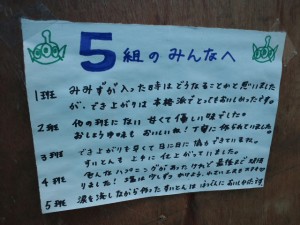 5組のみんなへ
1班 みみずが入った時はどうなることかと思いました
が、でき上がりは本格派でとってもおいしかったです。
2班 他の班にない甘くて優しい味でした。
おしょうゆ味もおいしいね!丁寧に作られていました。
3班 でき上がりも早くて日に日に協力できているね。
すいとんも上手に仕上がっていました。
4班 色んなハプニングがあったけれど最後まで頑張
りました!塩は少しずつ
5班 涙を流しながら作ったすいとんは